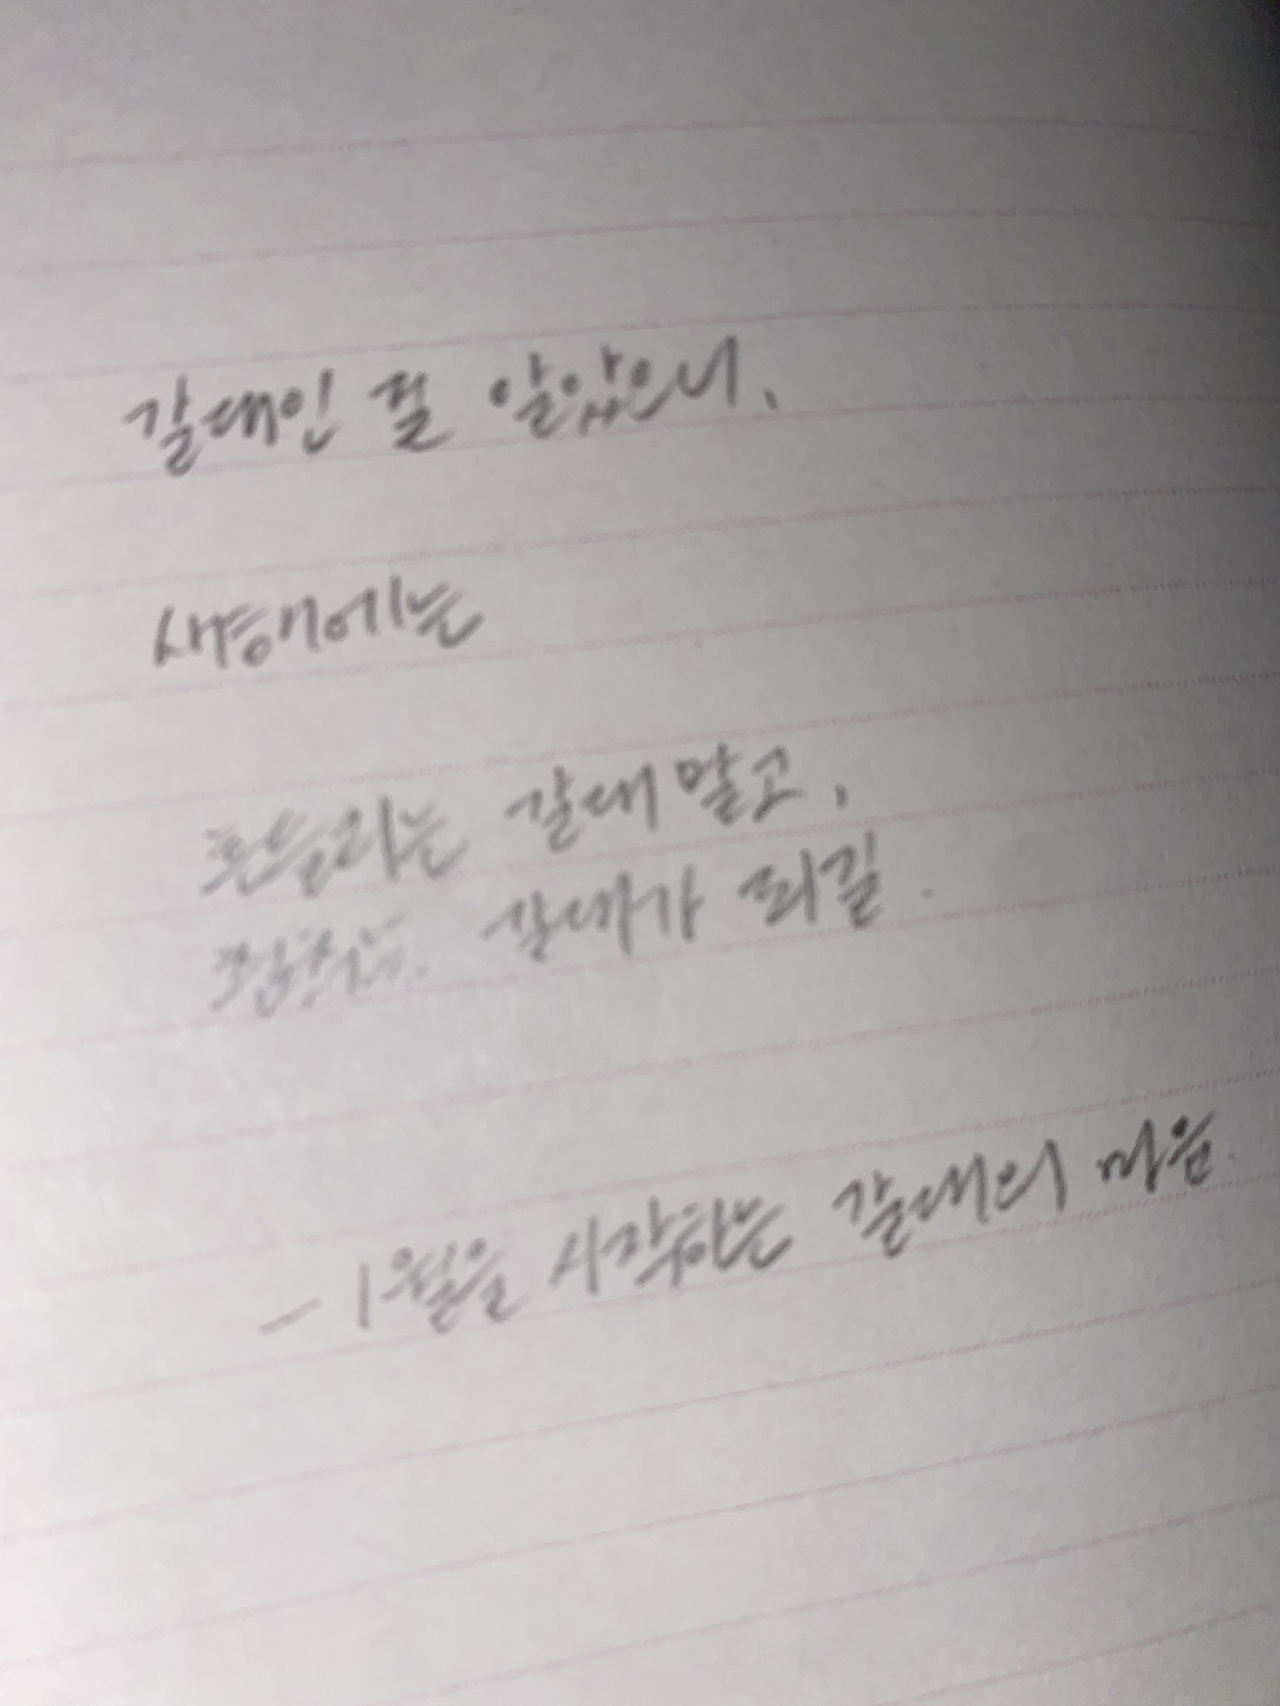 갈대인 걸 알았으니,
새해에는
흔들리는 갈대 말고,
갈대가 되길.
- 1월을 시작하는 갈대의 마음.